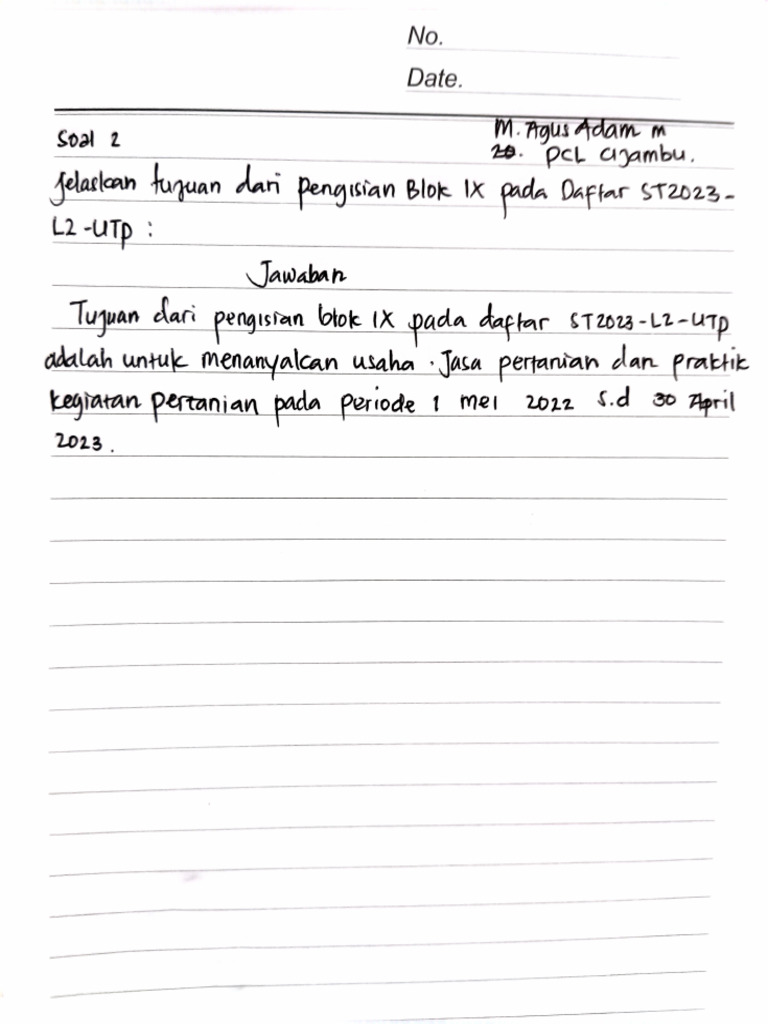 No.
Date.
Soal 2
M. Agus Adam M
20. PCL Cijambu.
Jelaskan tujuan dari pengisian Blok IX pada Daftar ST2023-
L2-UTP :
Jawaban
Tujuan dari pengisian blok IX pada daftar ST2023-L2-UTP
adalah untuk menanyakan usaha . Jasa pertanian dan praktik
kegiatan pertanian pada periode 1 mei 2022 s.d 30 April
2023.